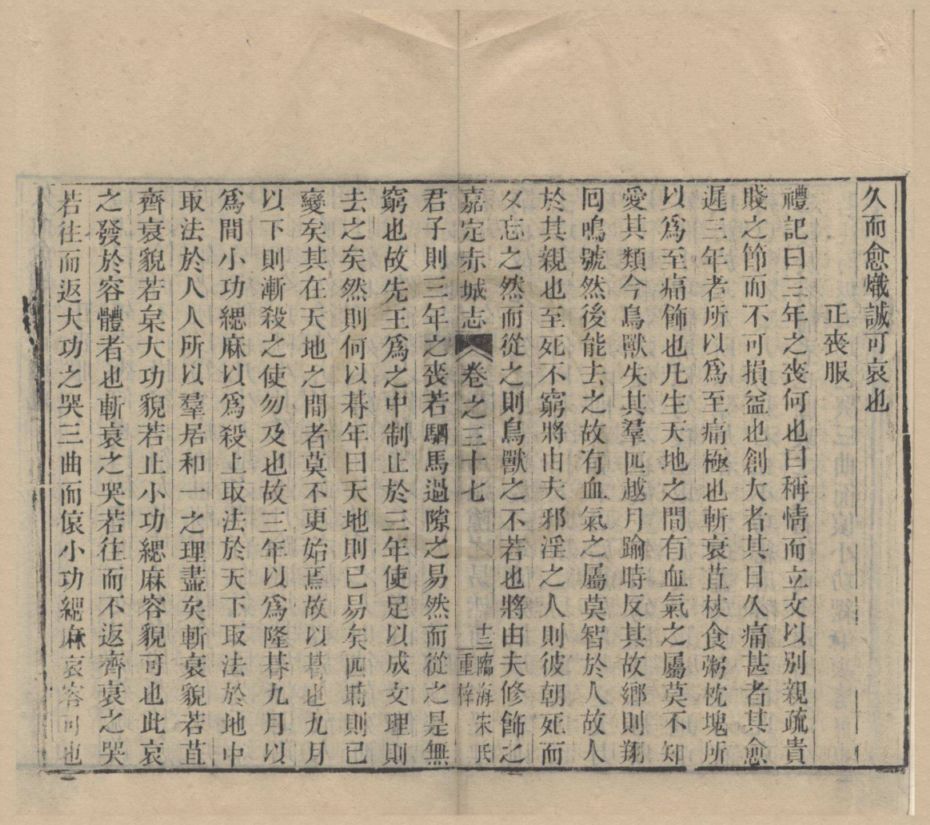 久而愈熾誠可哀也
正喪服
禮記曰三年之喪何也曰稱情而立文以別親疏貴
賤之節而不可損益也創大者其日久痛甚者其愈
遲三年者所以爲至痛極也斬衰苴杖食粥枕塊所
以爲至痛飾也凡生天地之間有血氣之屬莫不知
愛其類今鳥獸失其羣匹越月踰時反其故鄉則翔
囘鳴號然後能去之故有血氣之屬莫智於人故人
於其親也至死不窮將由夫邪淫之人則彼朝死而
夕忘之然而從之則鳥獸之不若也將由夫修飾之
嘉定赤城志 卷之三十七 十三 臨海宋氏重梓
君子則三年之喪若駟馬過隙之易然而從之是無
窮也故先王爲之中制止於三年使足以成文理則
去之矣然則何以朞年曰天地則已易矣四時則已
變矣其在天地之間者莫不更始焉故以朞也九月
以下則漸殺之使勿及也故三年以爲隆朞九月以
爲間小功緦麻以爲殺上取法於天下取法於地中
取法於人人所以羣居和一之理盡矣斬衰貌若苴
齊衰貌若枲大功貌若止小功緦麻容貌可也此哀
之發於容體者也斬衰之哭若往而不返齊衰之哭
若往而返大功之哭三曲而偯小功緦麻哀容可也